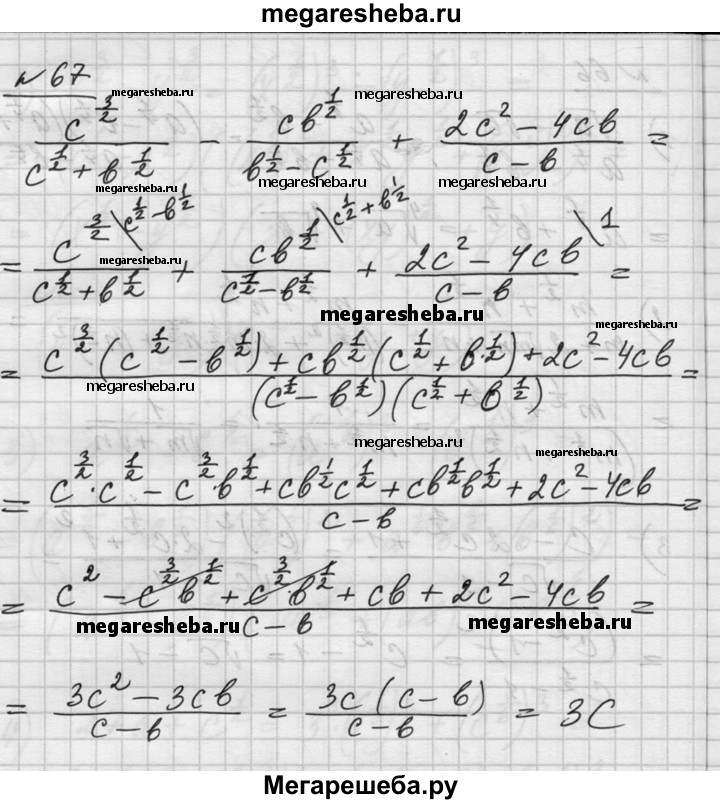 megaresheba.ru
№67
megaresheba.ru megaresheba.ru
c^{3/2}/(c^{1/2} + b^{1/2}) − cb^{1/2}/(b^{1/2} − c^{1/2}) + (2c² − 4cb)/(c − b) =
megaresheba.ru megaresheba.ru megaresheba.ru
= c^{3/2}\^{c^{1/2} − b^{1/2}}/(c^{1/2} + b^{1/2}) + cb^{1/2}\^{c^{1/2} + b^{1/2}}/(c^{1/2} − b^{1/2}) + (2c² − 4cb)\^{1}/(c − b) =
megaresheba.ru
megaresheba.ru
= (c^{3/2}(c^{1/2} − b^{1/2}) + cb^{1/2}(c^{1/2} + b^{1/2}) + 2c² − 4cb)/((c^{1/2} − b^{1/2})(c^{1/2} + b^{1/2})) =
megaresheba.ru
megaresheba.ru megaresheba.ru
= (c^{3/2} · c^{1/2} − c^{3/2} · b^{1/2} + cb^{1/2}c^{1/2} + cb^{1/2}b^{1/2} + 2c² − 4cb)/(c − b) =
= (c² − c^{3/2}b^{1/2} + c^{3/2} · b^{1/2} + cb + 2c² − 4cb)/(c − b) =
megaresheba.ru megaresheba.ru
= (3c² − 3cb)/(c − b) = 3c(c − b)/(c − b) = 3c
Мегарешеба.ру